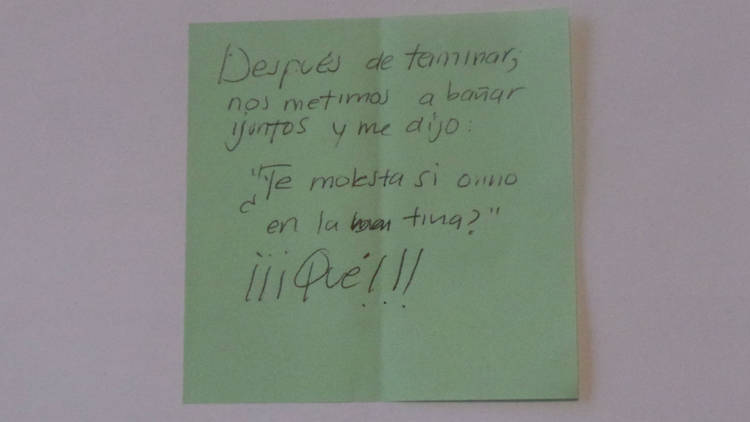 Después de terminar,
nos metimos a bañar
juntos y me dijo:
"¿Te molesta si orino
en la tina?"
¡¡¡Qué!!!